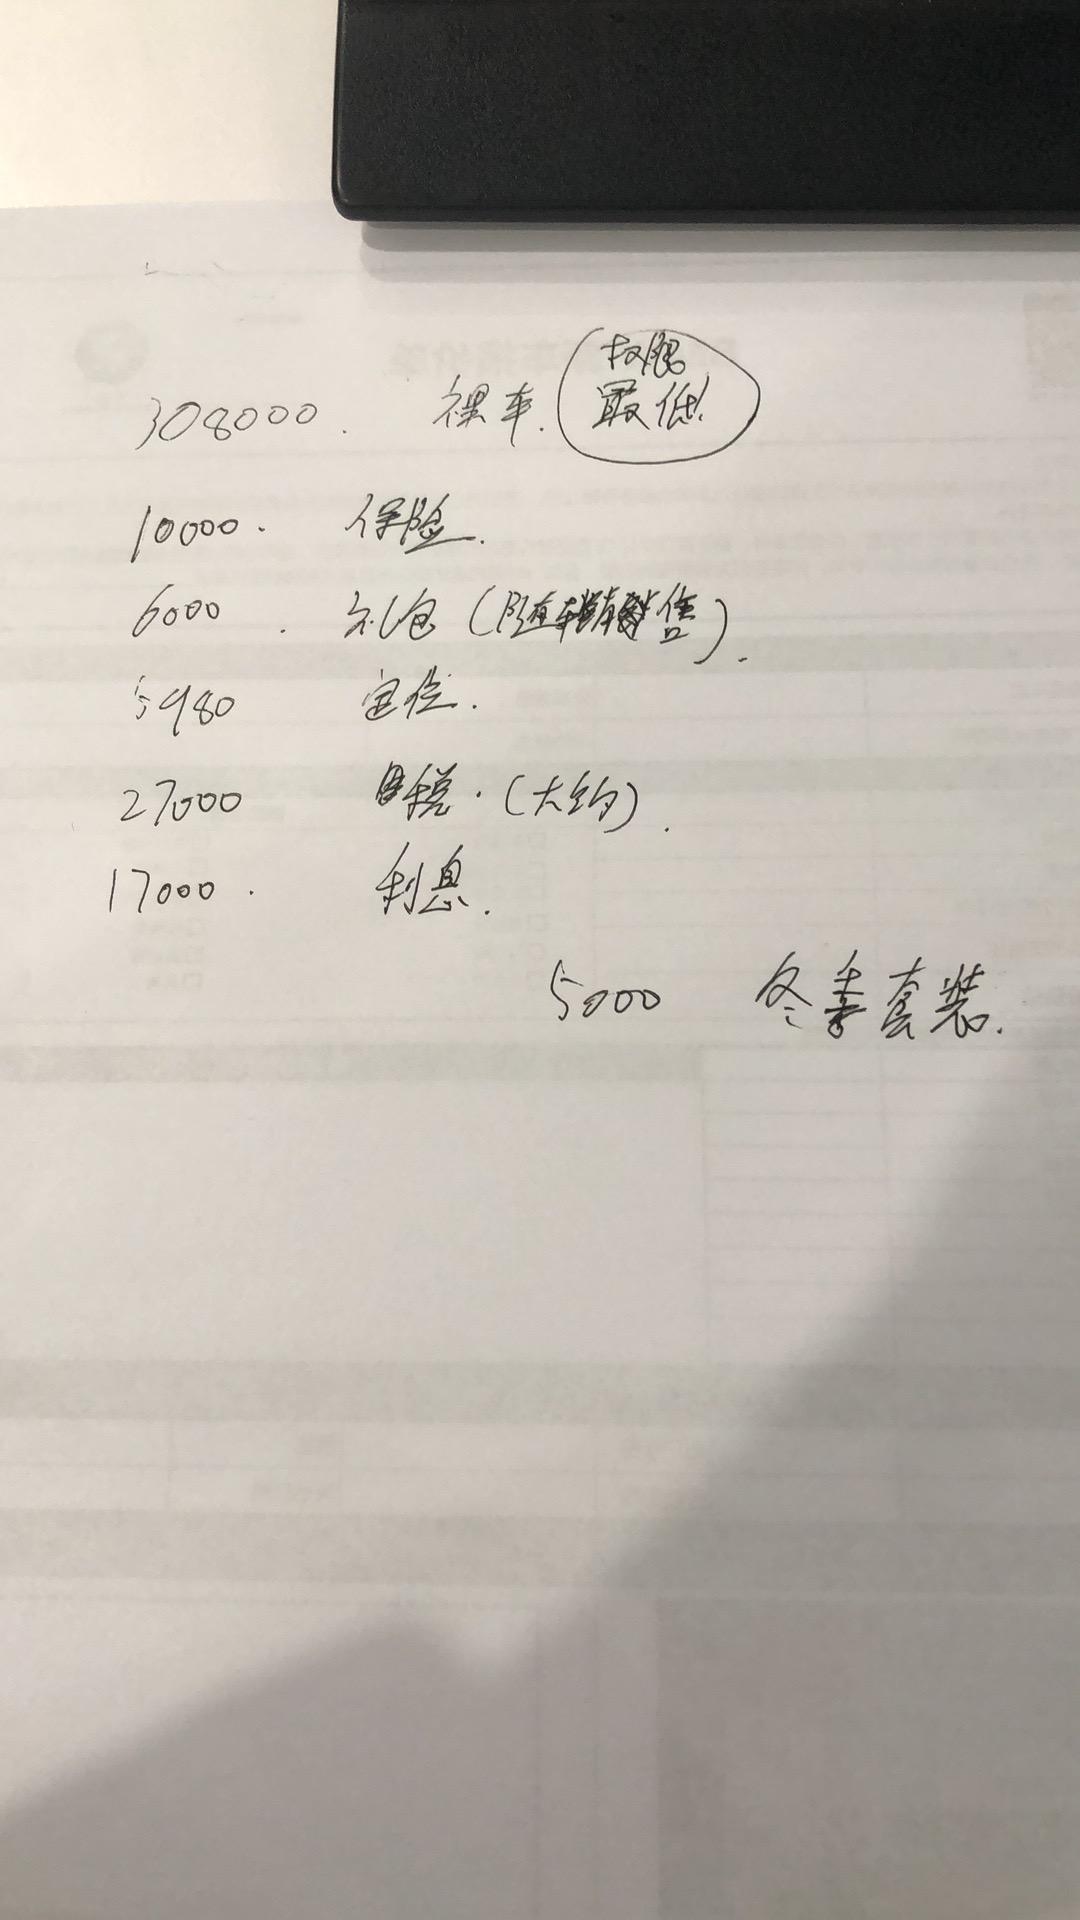 权限
308000. 裸车. 最低!
10000. 保险.
6000. 礼包(随车销售).
5980 定位.
27000 税.(大约).
17000. 利息.
5000 冬季套装.